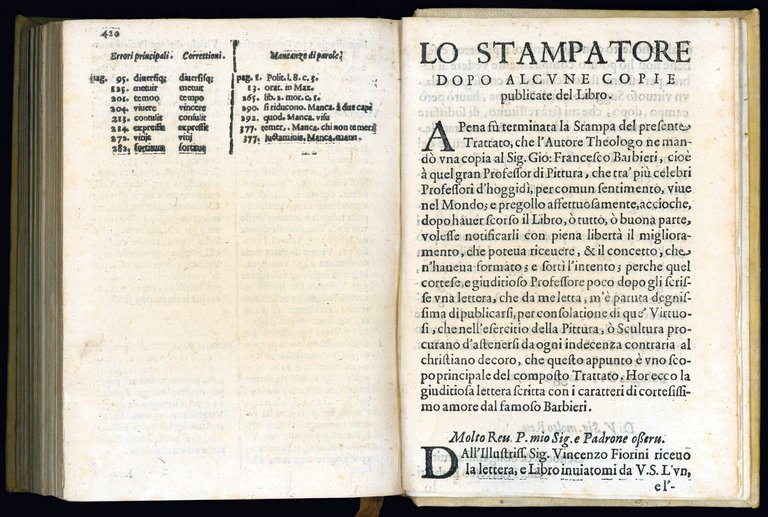 420
Errori principali. Correttioni.
pag. 95. diuersiq; diuersisq;
125. metuir metuit
201. tempo tempo
204. viuere vincere
213. consuiit consulit
214. expressis expressè
272. vitijs vitij
282.
Mancanze di parole.
pag. 1. Polit. l. 8. c. 5.
13. orat. in Max.
265. lib. 2. mor. c. 1.
290. si riducono. Manca. à due capi
292. quod. Manca. visu
377. temer, . Manca. chi non temerà
377. Manca.
LO STAMPATORE
DOPO ALCVNE COPIE
publicate del Libro.
APena fù terminata la Stampa del presente
Trattato, che l'Autore Theologo ne man-
dò vna copia al Sig. Gio: Francesco Barbieri, cioè
à quel gran Professor di Pittura, che tra' più celebri
Professori d'hoggidì, per comun sentimento, viue
nel Mondo; e pregollo affettuosamente, accioche,
dopo hauer scorso il Libro, ò tutto, ò buona parte,
volesse notificarli con piena libertà il migliora-
mento, che poteua riceuere, & il concetto, che
n'haueua formato; e sortì l'intento; perche quel
cortese, e giuditioso Professore poco dopo gli scris-
se vna lettera, che da me letta, m'è paruta degnis-
sima di publicarsi, per consolatione di que' Virtuo-
si, che nell'esercitio della Pittura, ò Scultura procu-
rano d'astenersi da ogni indecenza contraria al
christiano decoro, che questo appunto è vno sco-
po principale del composto Trattato. Hor ecco la
giuditiosa lettera scritta con i caratteri di cortesissi-
mo amore dal famoso Barbieri.
Molto Reu. P. mio Sig. e Padrone osseru.
DAll'Illustriss. Sig. Vincenzo Fiorini riceuo
la lettera, e Libro inuiatomi da V. S. L'vn,
e l'-